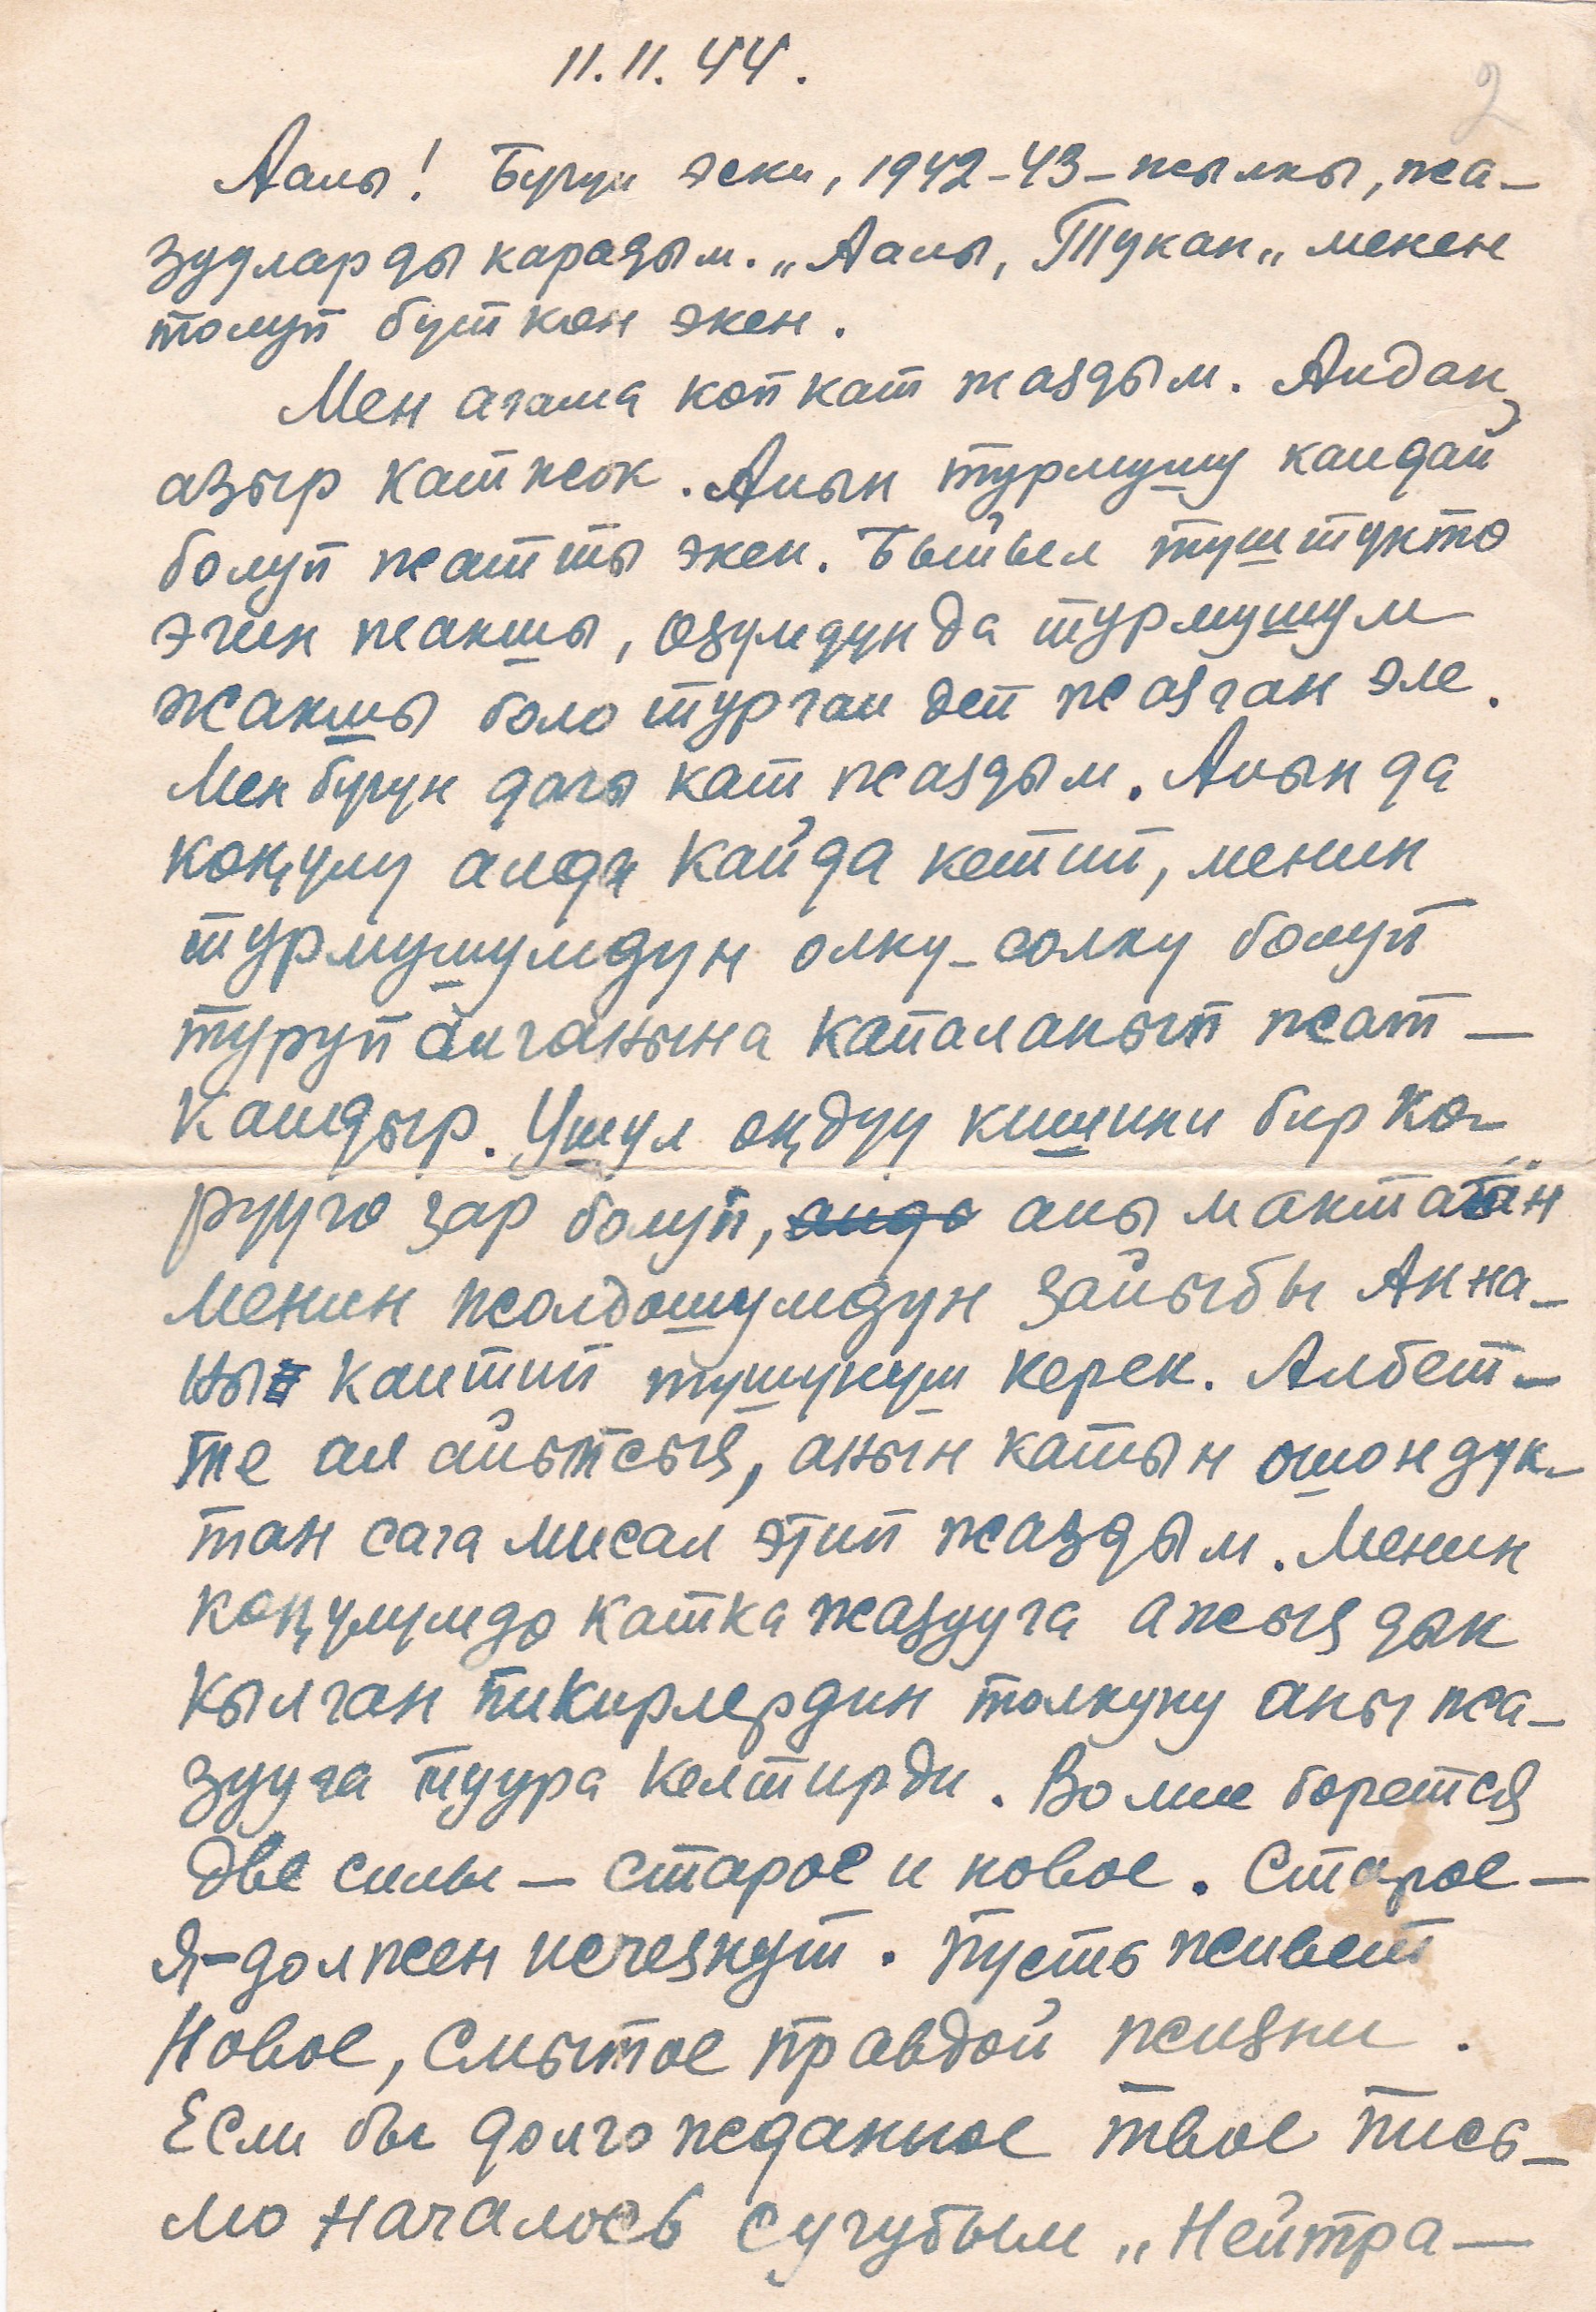 11.11.44.
2
Аалы! Бүгүн эски, 1942-43-жылкы, жа-
зууларды карадым. „Аалы, Тукан„ менен
толуп бүткөн экен.
Мен агама көп кат жаздым. Андан,
азыр кат жок. Анын турмушу кандай
болуп жатты экен. Быйыл түштүктө
эгин жакшы, өзүмдүн да турмушум
жакшы боло турган деп жазган эле.
Мен бүгүн дагы кат жаздым. Анын да
көңүлү алда кайда кетип, менин
турмушумдун олку-солку болуп
туруп алганына капаланып жат-
кандыр. Ушул өңдүү кишини бир кө-
рүүгө зар болуп, аны мактаган
менин жолдошумдун зайыбы Анна-
ны кантип түшүнүш керек. Албет-
те ал айытсыз, анын катын ошондук-
тан сага мисал этип жаздым. Менин
көңүлүмдө катка жазууга ажыздык
кылган пикирлердин толкуну аны жа-
зууга туура келтирди. Во мне борется
две силы — старое и новое. Старое —
Я-должен исчезнут. Пусть живет
Новое, смытое правдой жизни.
Если бы долгожданное твое пись-
мо началось сугубым „Нейтра-